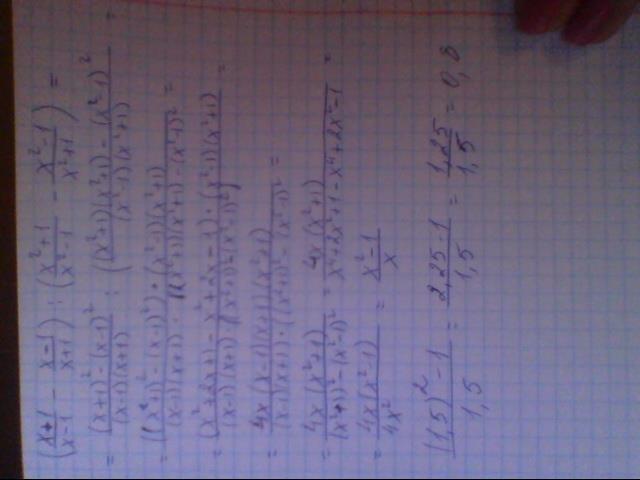 (x+1/x-1 - x-1/x+1) : (x²+1/x²-1 - x²-1/x²+1) =
= (x+1)²-(x-1)²/(x-1)(x+1) : ((x²+1)(x²+1)-(x²-1)²/(x²-1)(x²+1)) =
= ((x+1)²-(x-1)²)·(x²-1)(x²+1)/(x-1)(x+1)·((x²+1)(x²+1)-(x²-1)² =
= (x²+2x+1-x²+2x-1)·(x²-1)(x²+1)/(x-1)(x+1)((x²+1)²-(x²-1)²) =
= 4x(x-1)(x+1)(x²+1)/(x-1)(x+1)·((x²+1)²-(x²-1)² =
= 4x(x²+1)/(x²+1)²-(x²-1)² = 4x(x²+1)/x⁴+2x²+1-x⁴+2x²-1 =
= 4x(x²-1)/4x² = x²-1/x
(1,5)²-1/1,5 = 2,25-1/1,5 = 1,25/1,5 = 0,8